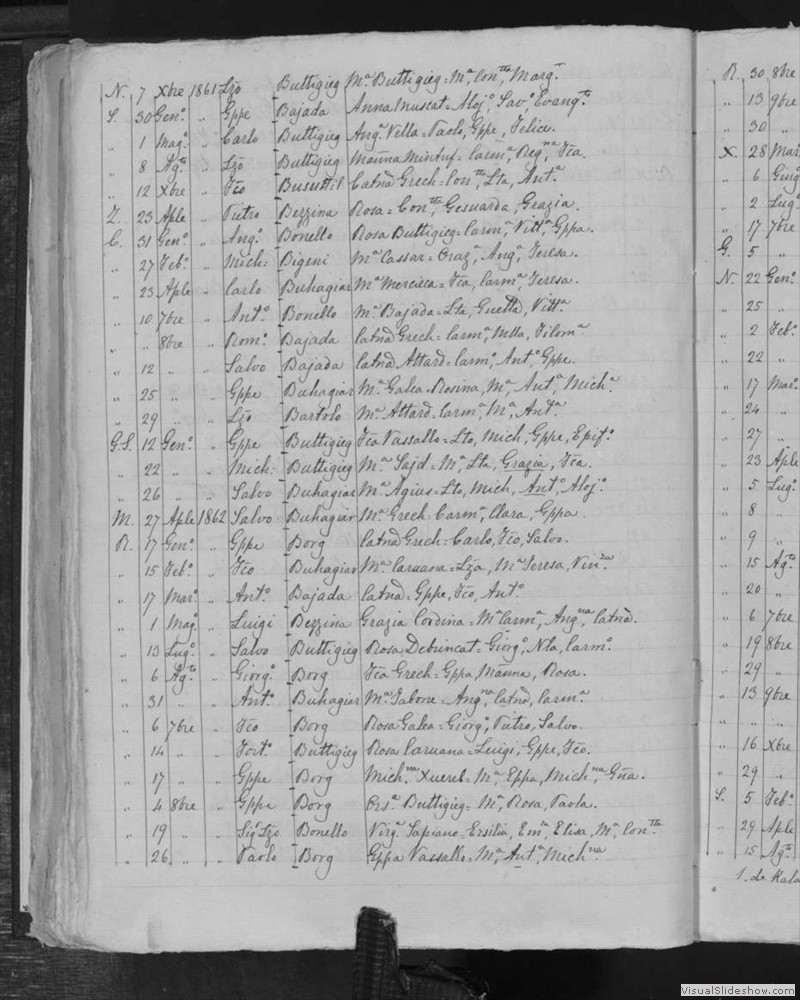 N. 7 Xbre 1861 Lzo Buttigieg Mª Buttigieg = Mª Contta, Margta
S. 30 Gen° „ Gppe Bajada Anna Muscat = Aloj°, Sav°, Evangta
„ 1 Mag° „ Carlo Buttigieg Angª Vella = Paolo, Gppe, Felice.
„ 8 Agto „ Lzo Buttigieg Manna Mintuf = Carmª, Regna, Fca.
„ 12 Xbre „ Fco Busuttil Catna Grech = Contta, Lta, Antª
Z. 23 Aple „ Pietro Bezzina Rosa = Contta, Gesuarda, Grazia.
C. 31 Gen° „ Ang° Bonello Rosa Buttigieg = Carmª, Vittª, Gppa.
„ 27 Feb° „ Mich: Bigeni Mª Cassar = Grazª, Angª, Teresa.
„ 23 Aple „ Carlo Buhagiar Mª Mercieca = Fca, Carmª, Teresa.
„ 10 7bre „ Ant° Bonello Mª Bajada = Lta, Vittª
„ „ 8bre „ Rom° Bajada Catna Grech = Carmª, Filomª
„ 12 „ „ Salvo Bajada Catna Attard = Carm°, Ant°, Gppe.
„ 25 „ „ Gppe Buhagiar Mª Galea = Rosina, Mª Antª, Michª
„ 29 „ „ Lzo Bartolo Mª Attard = Carmª, Mª, Antª
G.S. 12 Gen° „ Gppe Buttigieg Fca Vassallo = Lto, Mich, Gppe, Epif°
„ 22 „ „ Mich: Buttigieg Mª Sajd = Mª, Lta, Grazia, Fca.
„ 26 „ „ Salvo Buhagiar Mª Agius = Lto, Mich, Ant°, Aloj°
M. 27 Aple 1862 Salvo Buhagiar Mª Grech = Carmª, Clara, Gppa.
R. 17 Gen° „ Gppe Borg Catna Grech = Carlo, Fco, Salvo.
„ 15 Feb° „ Fco Buhagiar Mª Caruana = Lza, Mª Teresa, Vinza
„ 17 Mar° „ Ant° Bajada Catna = Gppe, Fco, Ant°
„ 1 Mag° „ Luigi Bezzina Grazia Cordina = Mª Carmª, Angna, Catna.
„ 13 Lug° „ Salvo Buttigieg Rosa Debrincat = Giorg°, Nla, Carm°
„ 6 Agto „ Giorg° Borg Fca Grech = Gppa, Manna, Rosa.
„ 31 „ „ Ant° Buhagiar Mª Tabone = Angna, Catna, Carmª
„ 6 7bre „ Fco Borg Rosa Galea = Giorg°, Pietro, Salvo.
„ 14 „ „ Fort° Buttigieg Rosa Caruana = Luigi, Gppe, Fco.
„ 17 „ „ Gppe Borg Michna Xuereb = Mª, Gppa, Michna, Gna.
„ 4 8bre „ Gppe Borg Orsª Buttigieg = Mª, Rosa, Paola.
„ 19 „ „ Sigr Lzo Bonello Virgª Sapiano = Ersilia, Emª, Elisa, Mª Contta
„ 26 „ „ Paolo Borg Gppa Vassallo = Mª, Antª, Michna
R. 30 8bre
„ 13 9bre
„ 30 „
X. 28 Mar
„ 6 Giug
„ 2 Lug°
„ 17 7bre
G. 5 „
N. 22 Gen°
„ 25 „
„ 2 Feb°
„ 22 „
„ 17 Mar°
„ 24 „
„ 27 „
„ 23 Aple
„ 5 Lug°
„ 8 „
„ 9 „
„ 15 Agto
„ 20 „
„ 6 7bre
„ 19 8bre
„ 29 „
„ 13 9bre
„ „ „
„ 16 Xbre
„ 29 „
S. 5 Feb°
„ 29 Aple
„ 15 Agto
1. de Kala
VisualSlideshow.com